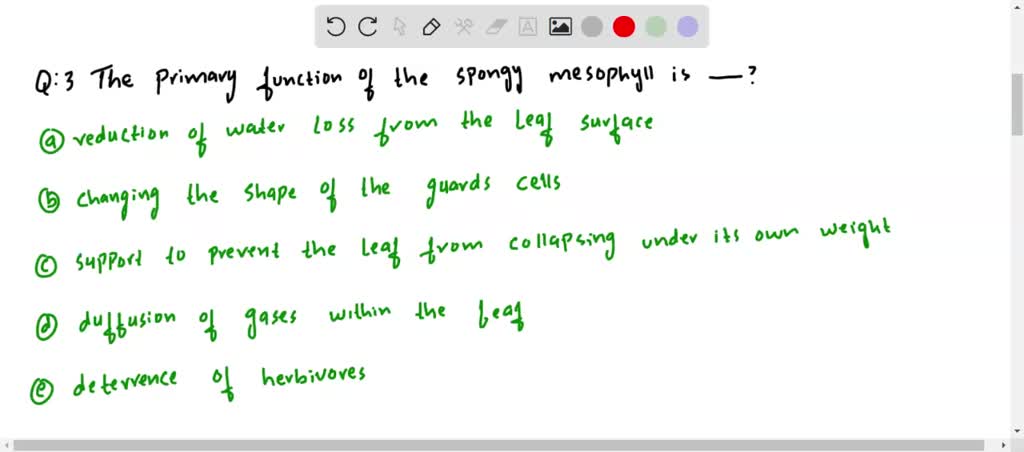 Q:3 The primary function of the spongy mesophyll is —?
(a) reduction of water loss from the leaf surface
(b) changing the shape of the guards cells
(c) support to prevent the leaf from collapsing under its own weight
(d) duffusion of gases within the leaf
(e) deterrence of herbivores